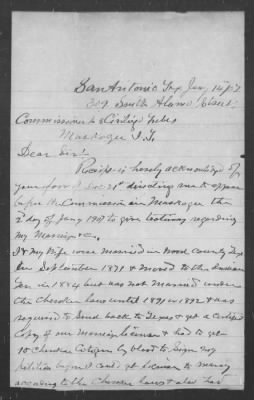 San Antonio Tex Jan, 14/07
South Alamo Street;
Commissioner to 5 Civilize Tribes
Muskogee I.T.
Dear Sir!
Recipt is hereby acknowledge of
your favor of Dec. 21st directing me to appear
before the Commission in Muskogee the
2 day of Jany 1907 to give testimony regarding
my Marriage &c.
I & My Wife were married in Wood County Tex
In September 1871 & moved to the Indian
Ter in 1884 but was not Married under
the Cherokee laws until 1891 or 1892 & was
required to Send back to Texas & get a Certified
Copy of our Marriage license & had to get
10 Cherokee Citizens by blood to Sign my
petition before I could get license to marry
according to the Cherokee laws & also had